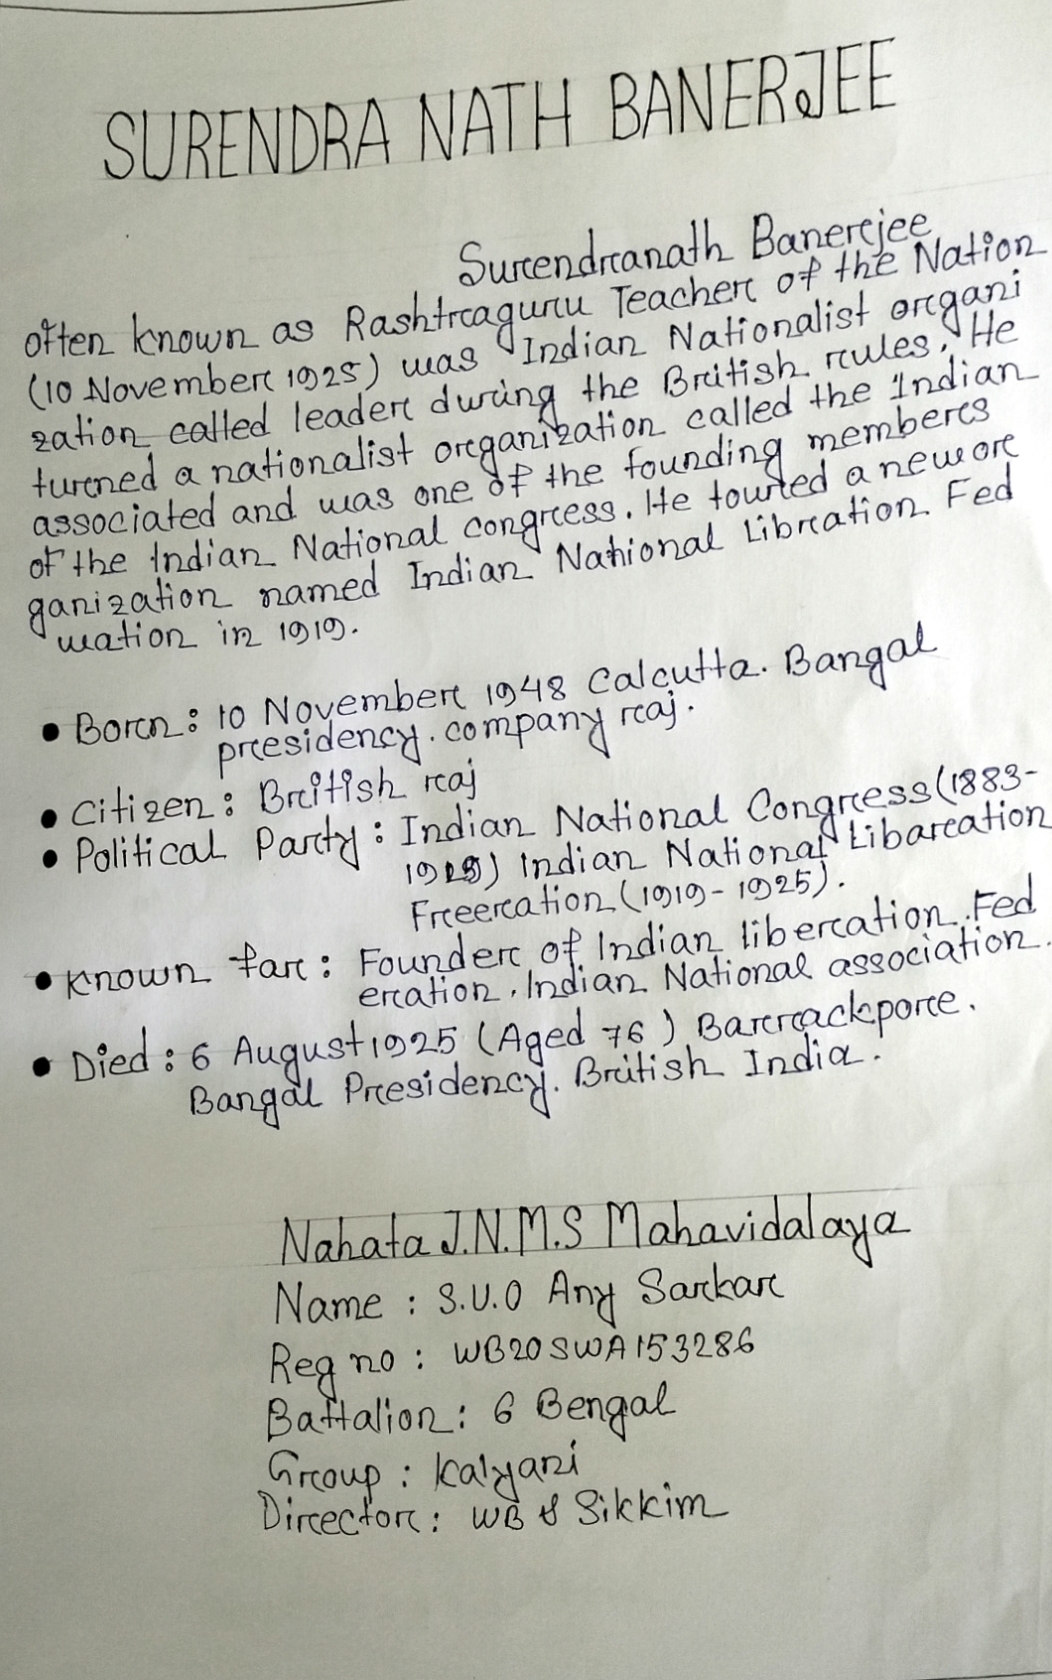 SURENDRA NATH BANERJEE
Surendranath Banerjee
often known as Rashtraguru Teacher of the Nation
(10 November 1925) was Indian Nationalist organi
zation called leader during the British rules. He
turned a nationalist organization called the Indian
associated and was one of the founding members
of the Indian National congress. He tourted a new or
ganization named Indian National Libration Fed
uration in 1919.
• Born: 10 November 1948 Calcutta. Bangal
presidency. company raj.
• Citizen: British raj
• Political Party: Indian National Congress (1883-
1919) Indian National Libaration
Freeration (1919-1925).
• Known far: Founder of Indian liberation. Fed
eration. Indian National association.
• Died: 6 August 1925 (Aged 76) Barrackpore.
Bangal Presidency. British India.
Nahata J.N.M.S Mahavidalaya
Name: S.U.O Any Sarkar
Reg no: WB20SWA153286
Battalion: 6 Bengal
Group: Kalyani
Director: WB & Sikkim